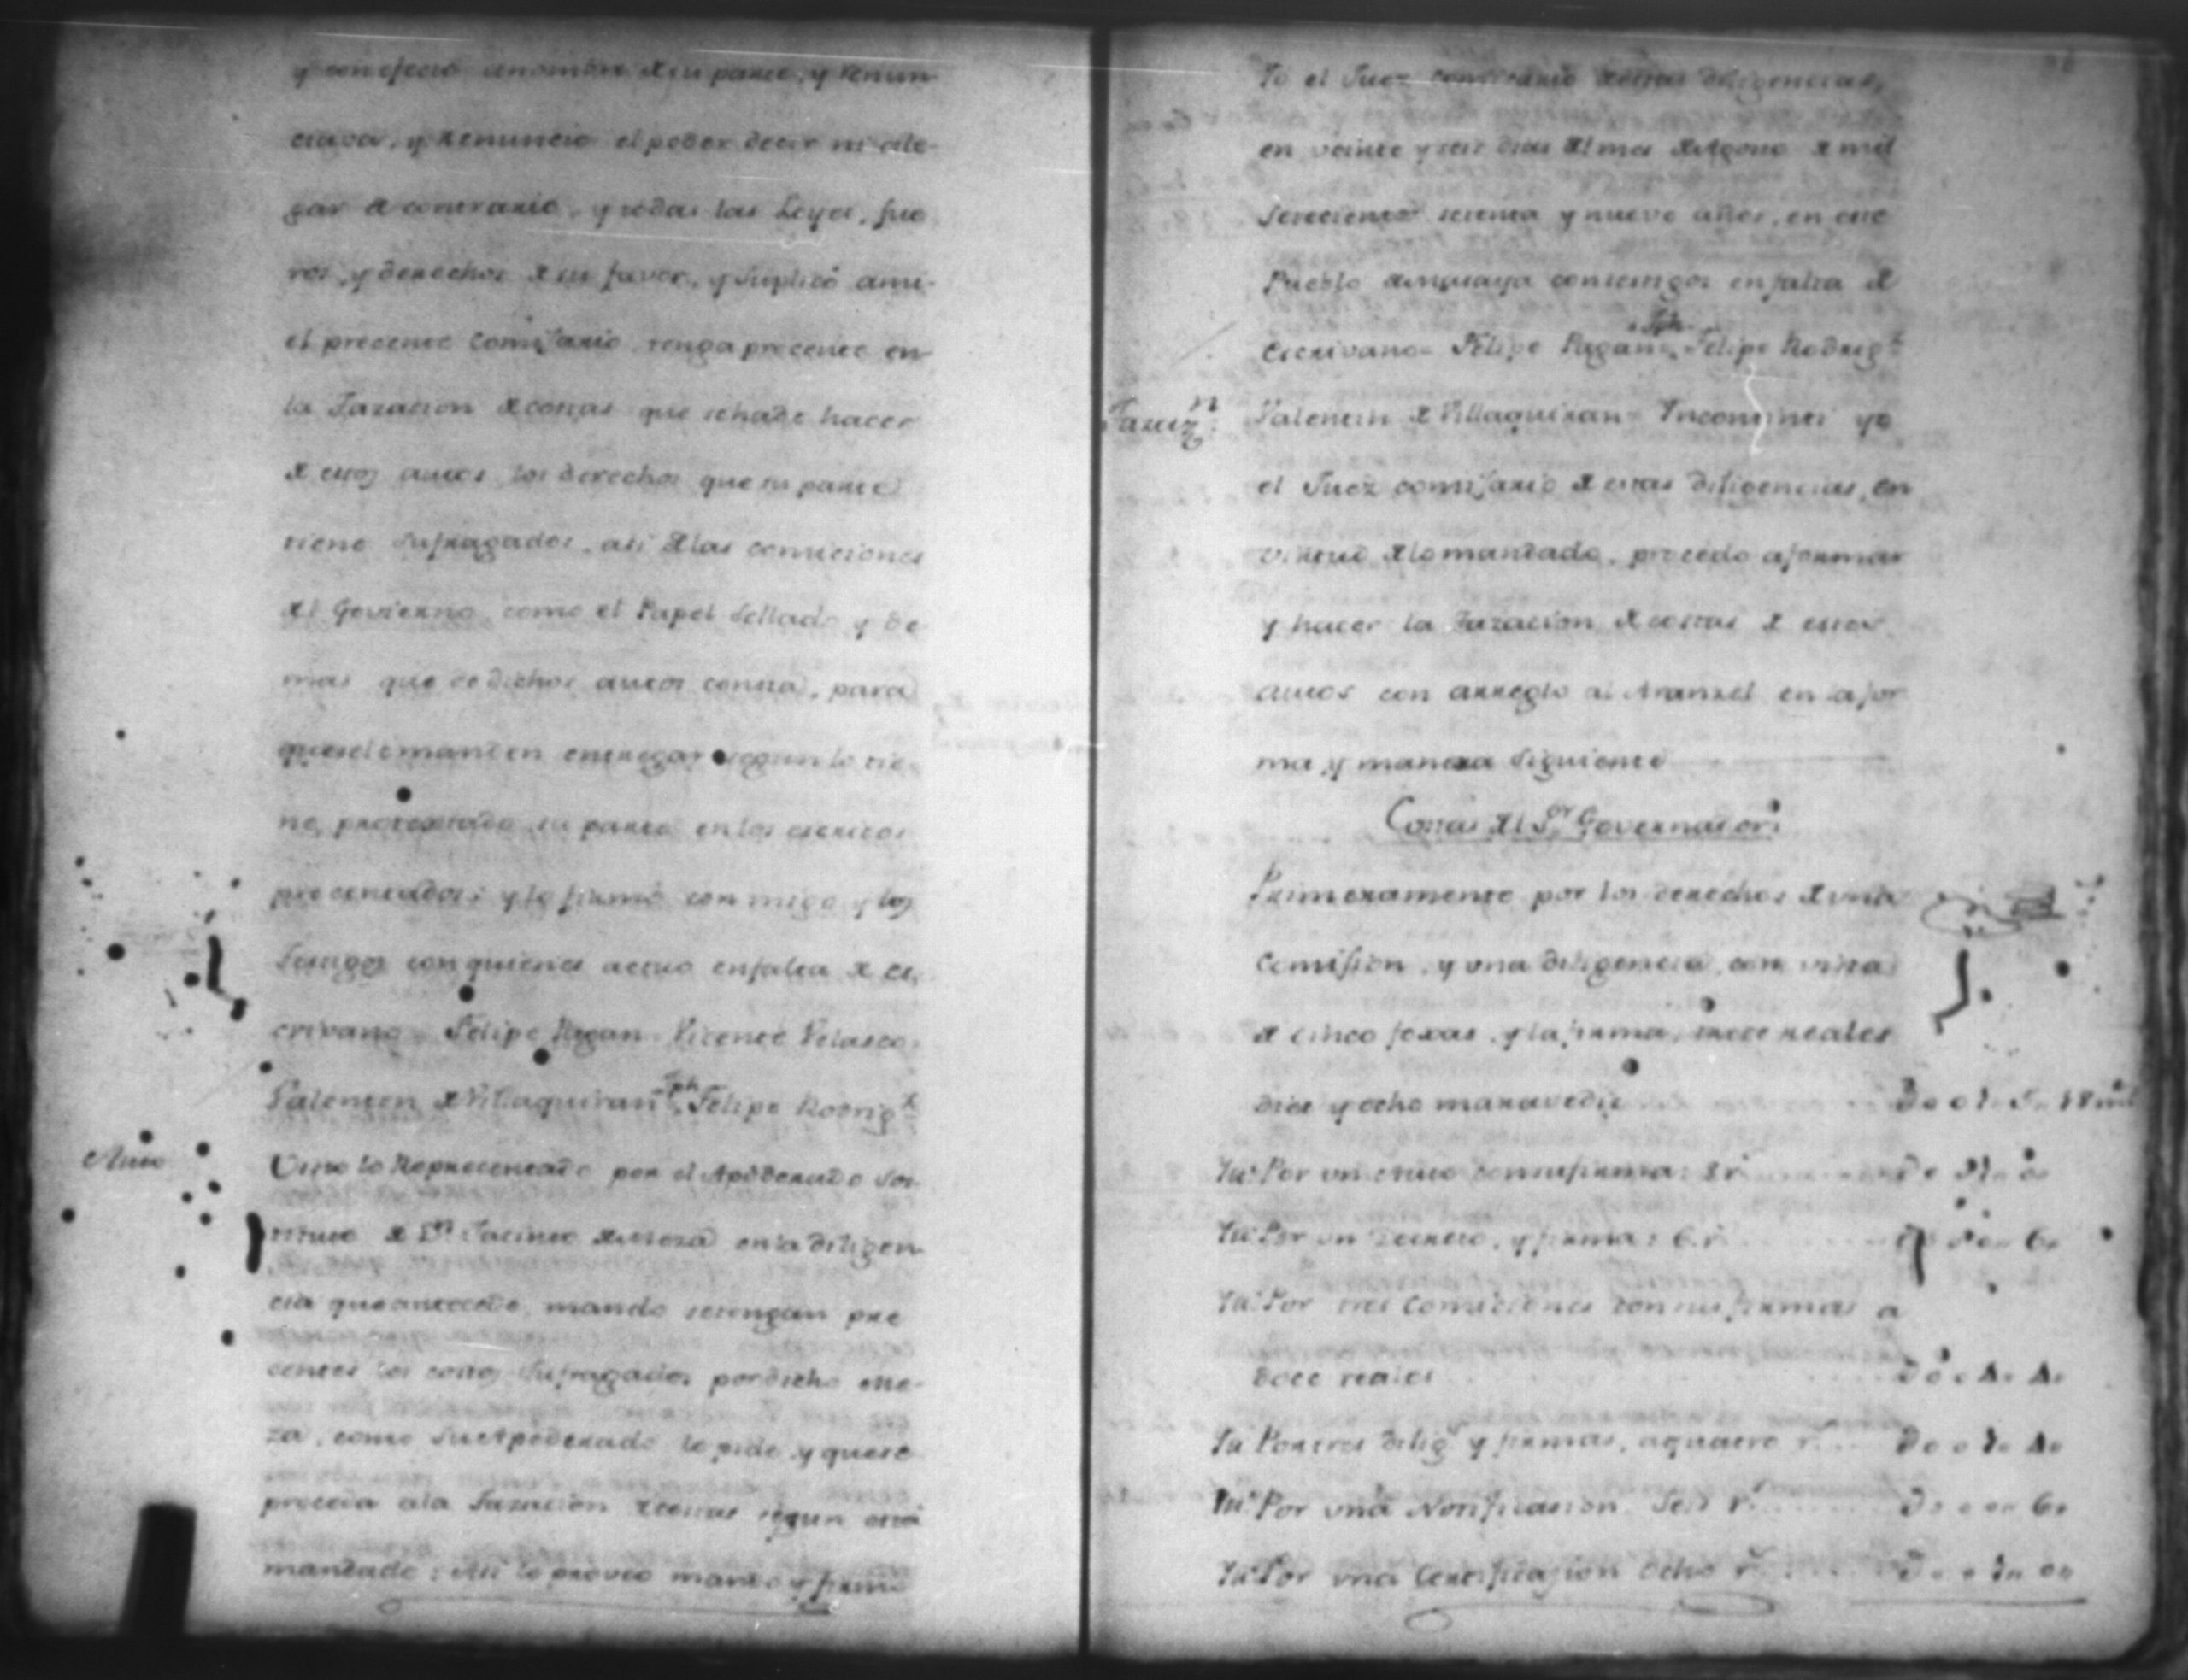 y con efecto anombre de su parte, y renun
ciava, y Renuncio el poder decir ni ale-
gar de contrario, y todas las Leyes, fue
ros, y derechos de su favor, y suplicó ami
el precente Comisario tenga precente en
la Tazacion de costas que sehade hacer
de estos autos los derechos que su parte
tiene sufragados, asi de las comiciones
del Govierno como el Papel Sellado y de
mas que de dichos autos consta, para
queselemanden entregar segun lo tie-
ne protextado su parte en los escritos
precentados: y lo firmó con migo y los
testigos con quienes actuo enfalta de es-
crivano = Felipe Pagan = Vicente Velasco
Valentin de Villaquiran = Jph Felipe Rodrigz
Auto
Visto lo Reprecentado por el Apoderado sos-
tituto de Dn Jacinto de Meza en la diligen-
cia que antecede, mando setengan pre
centes los costos sufragados por dicho Me-
za, como su Apoderado lo pide y quese
proceda ala Tazacion de costas segun está
mandado: Asi lo proveo mando y firmo
Yo el Juez comisario de estas diligencias,
en veinte y seis dias del mes de Agosto de mil
setecientos setenta y nueve años, en este
Pueblo con testigos enfalta de
Escrivano = Felipe Pagan = Jph Felipe Rodrigz
Tazazn
Valentin de Villaquiran = Yncontinti yo
el Juez comisario de estas diligencias, en
virtud de lo mandado, procedo aformar
y hacer la Tazacion de costas de estos
autos con arreglo al Aranzel en la for
ma y manera siguiente
Costas del Sor Governador
Primeramente por los derechos de una
Comision, y una diligencia con vista
de cinco foxas, y la firma, trece reales
dies y ocho maravedis
Yt Por un Auto con su firma: 8 r
Yt Por un Decreto, y firma: 6 r
Yt Por tres Comiciones con sus firmas a
doce reales
Yt Por tres diligs y firmas, aquatro rs
Yt Por una Notificasion Seis rs
Yt Por una Certificazion ocho rs